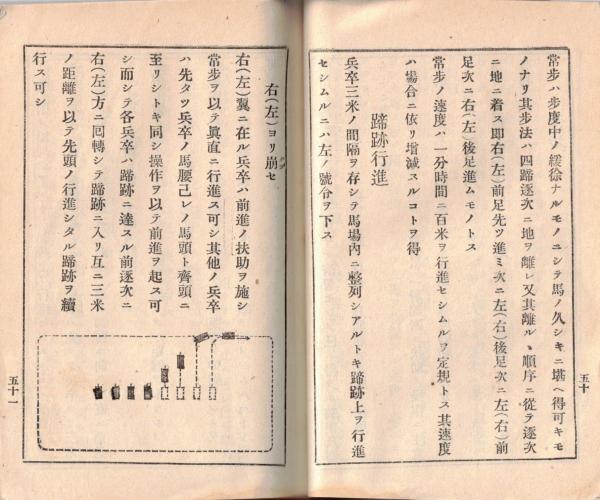 常步ハ步度中ノ緩徐ナルモノニシテ馬ノ久シキニ堪ヘ得可キモ
ノナリ其步法ハ四蹄逐次ニ地ヲ離レ又其離ルヽ順序ニ從テ逐次
ニ地ニ着ス即右(左)前足先ツ進ミ次ニ左(右)後足次ニ左(右)前
足次ニ右(左)後足進ムモノトス
常步ノ速度ハ一分時間ニ百米ヲ行進セシムルヲ定規トス其速度
ハ場合ニ依リ增減スルコトヲ得
蹄跡行進
兵卒三米ノ間隔ヲ存シテ馬場內ニ整列シアルトキ蹄跡上ヲ行進
セシムルニハ左ノ號令ヲ下ス
五十
右(左)ヨリ崩セ
右(左)翼ニ在ル兵卒ハ前進ノ扶助ヲ施シ
常步ヲ以テ眞直ニ行進ス可シ其他ノ兵卒
ハ先タツ兵卒ノ馬腰己レノ馬頭ト齊頭ニ
至リシトキ同シ操作ヲ以テ前進ヲ起ス可
シ而シテ各兵卒ハ蹄跡ニ達スル前逐次ニ
右(左)方ニ囘轉シテ蹄跡ニ入リ互ニ三米
ノ距離ヲ以テ先頭ノ行進シタル蹄跡ヲ續
行ス可シ
五十一